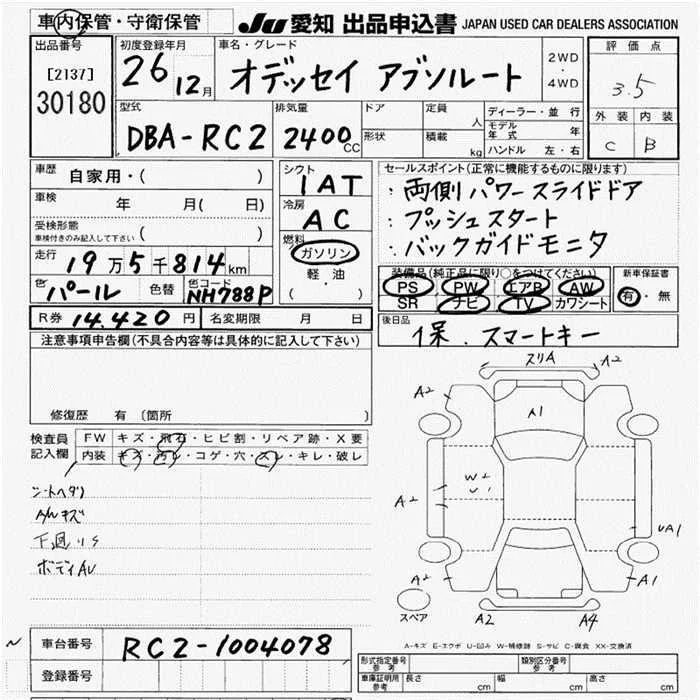 車内保管・守衛保管 JU 愛知 出品申込書 JAPAN USED CAR DEALERS ASSOCIATION
出品番号 初度登録年月 車名・グレード 2WD・4WD 評価点
[2137] 26 12月 オデッセイ アブソルート 3.5
30180 型式 排気量 ドア 定員 人 ディーラー・並行 外装 内装
DBA-RC2 2400CC 形状 積載 kg モデル年式 年 C B
ハンドル 左・右
車歴 自家用・( ) シフト IAT セールスポイント(正常に機能するものに限ります)
車検 年 月( 日) 冷房 AC ・両側パワースライドドア
受検形態 車検付きのみ記入して下さい ( ) 燃料 ・プッシュスタート
走行 19万5千814km ガソリン ・バックガイドモニタ
色 パール 色替 色コード NH788P 軽油 ( ) 装備品(純正品に限り○をつけてください) 新車保証書
PS PW エアB AW 有・無
SR ナビ TV カワシート
R券 14.420円 名変期限 月 日 後日品 保. スマートキー
注意事項申告欄(不具合内容等は具体的に記入して下さい)
修復歴 有 (箇所 )
検査員記入欄 FW キズ・飛石・ヒビ割・リペア跡・X要
内装 キズ・汚レ・コゲ・穴・スレ・キレ・破レ
シートヘタリ
A/Wキズ
下廻りS
ボディAU
スリA A2
A2 A1
A2 W2 U1 UA1
A2 A1
スペア A2 A4
A-キズ E-エクボ U-凹み W-補修跡 S-サビ C-腐食 XX-交換済
車台番号 RC2-1004078 型式指定番号 参考 類別区分番号 参考
登録番号 車庫証明用 参考 長さ cm 幅 cm 高さ cm